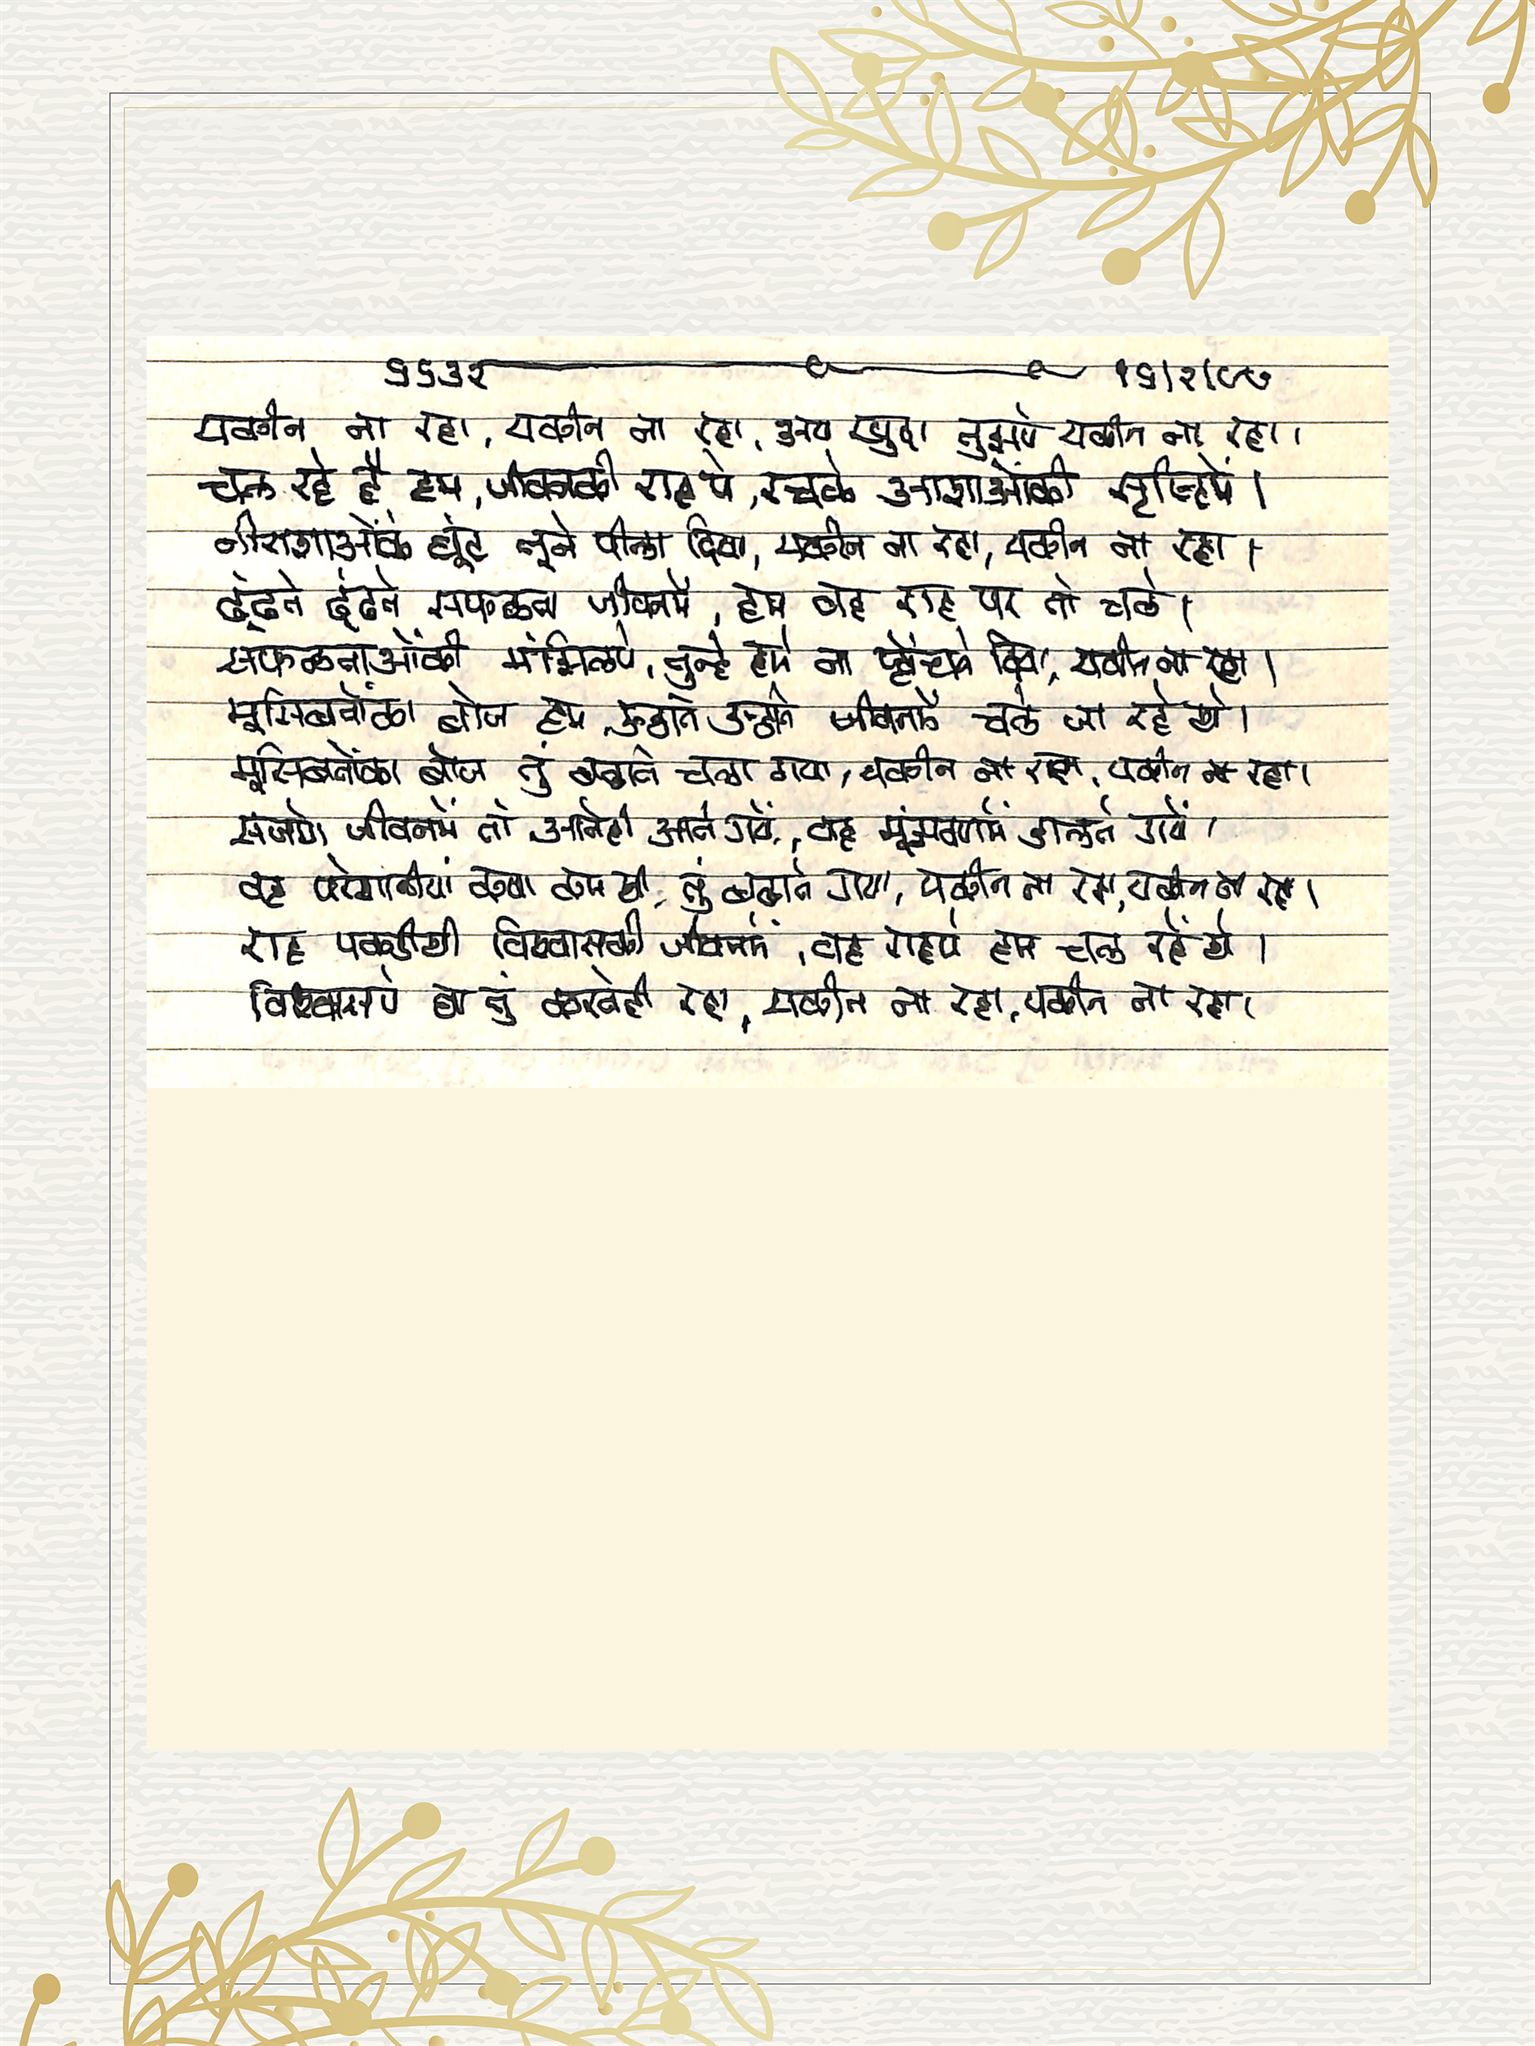 ५५३२ १५/२/८७
यकीन ना रहा, यकीन ना रहा, अय खुदा तुझपे यकीन ना रहा।
चल रहे है हम, जीवनकी राह पे, रचके आशाओंकी सृष्टिमें।
नीराशाओंके घूंट तूने पीला दिया, यकीन ना रहा, यकीन ना रहा।
ढूंढते ढूंढते सफळता जीवनमें, हम वह राह पर तो चले।
सफळताओंकी मंझिलपे, तुन्हे हमे ना पहोंचने दिया, यकीन ना रहा।
मूसिबतोंका बोज हम, ऊठाते उठाते जीवनमें चले जा रहे थे।
मूसिबतोंका बोज तुं बढाते चला गया, यकीन ना रहा, यकीन ना रहा।
संजोगे जीवनमें तो आतेही आते गयें, वह मूंझवणमें डालते गयें।
वह परेशानीयां क्या कम थी, तुं बढाते गया, यकीन ना रहा, यकीन ना रहा।
राह पकडीथी विश्वासकी जीवनमें, वह राहपे हम चल रहें थे।
विश्वासपे घा तुं करतेही रहा, यकीन ना रहा, यकीन ना रहा।